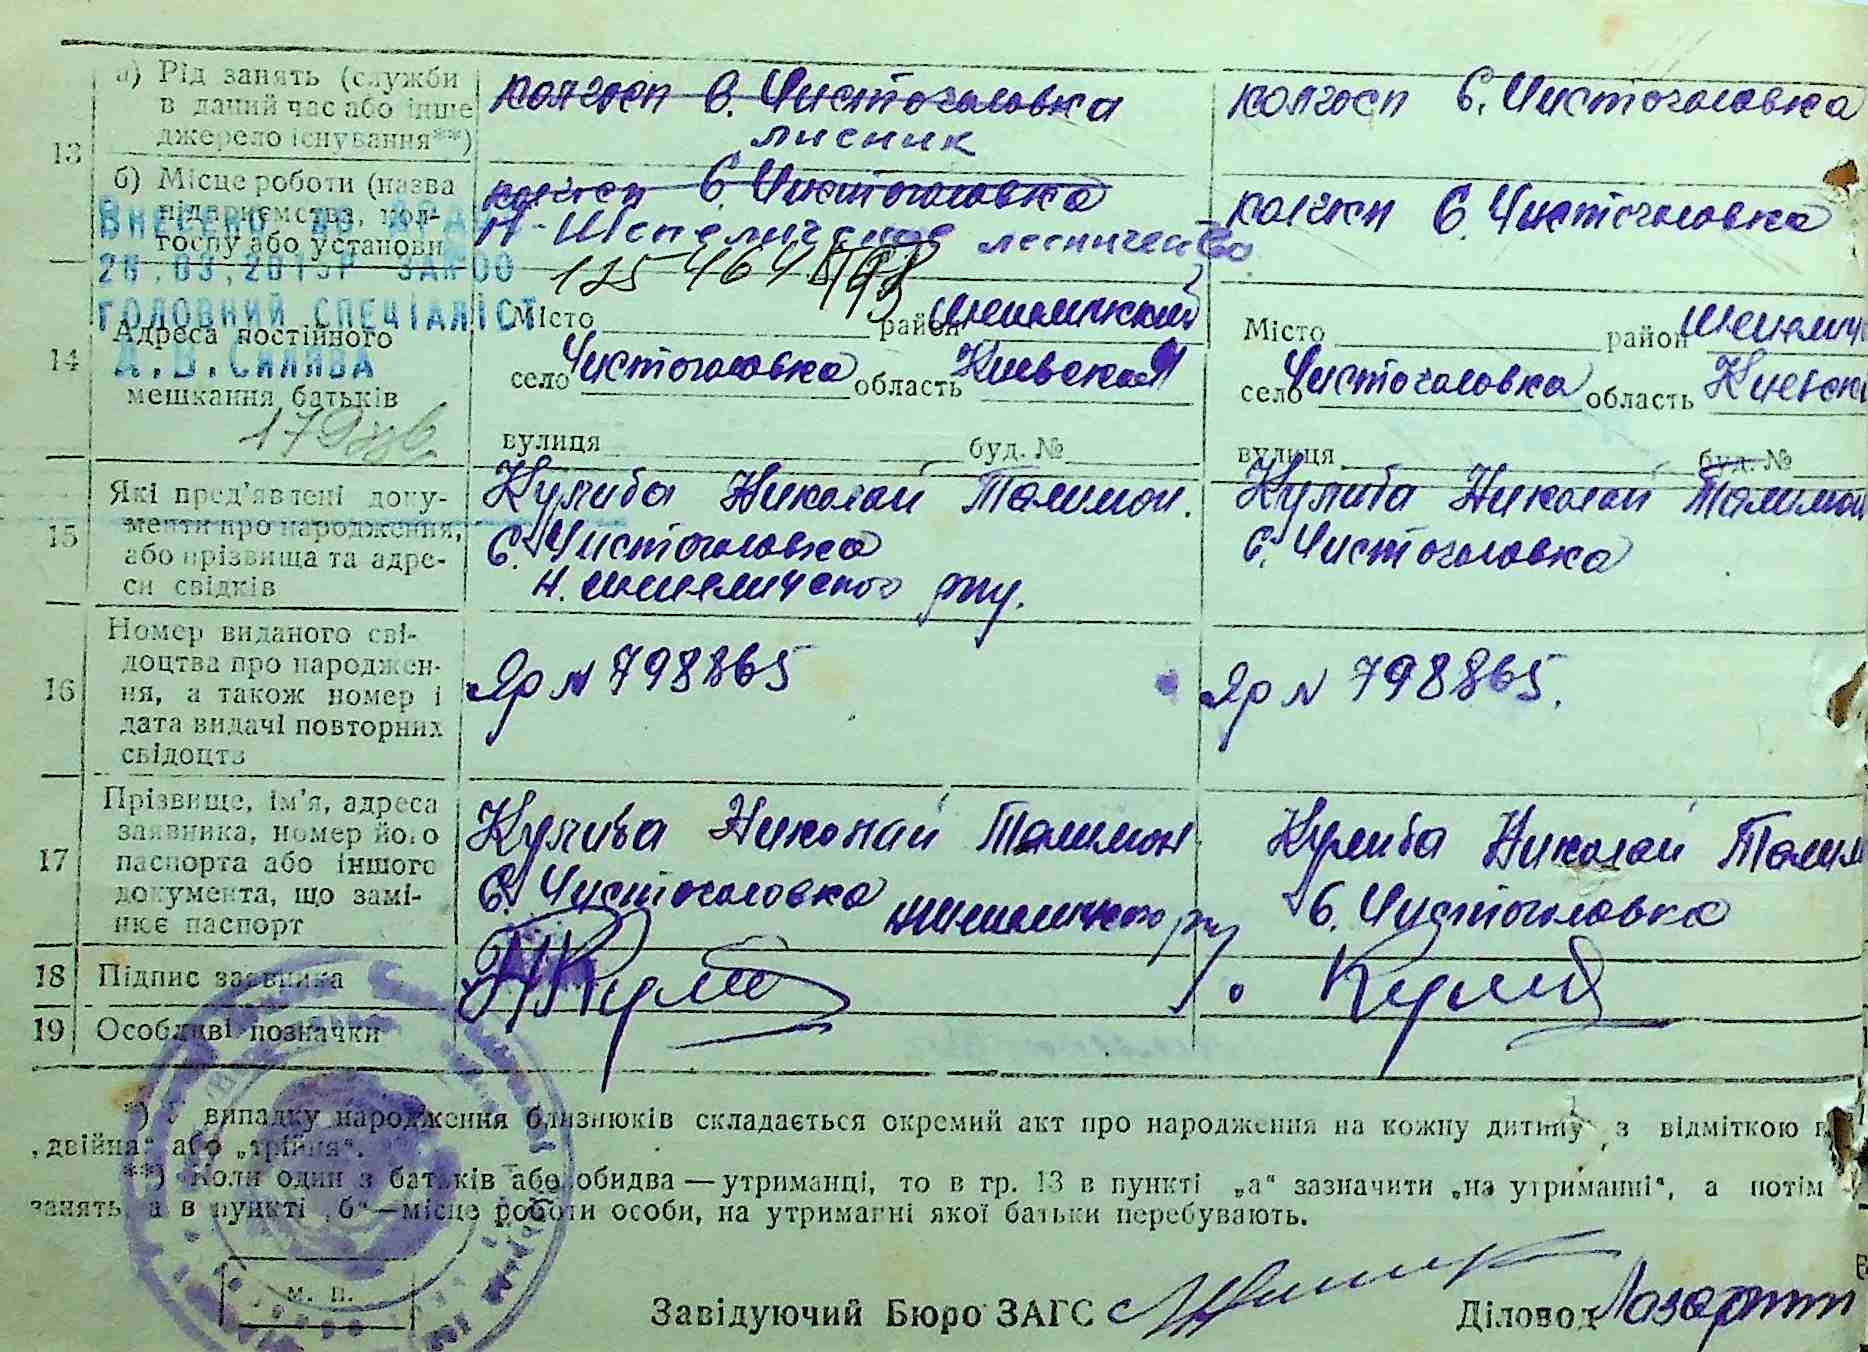 13
а) Рід занять (служби
в даний час або інше
джерело існування**)
колгосп с. Чистоголовка
лисник
колгосп с. Чистоголовка
б) Місце роботи (назва
підприємства, кол-
госпу або установи
колгосп с. Чистоголовка
Н-Шепеличское лесничество
колгосп с. Чистоголовка
ВНЕСЕНО ДО ДРАЦ
26.03.2015Р ЗАК 00
ГОЛОВНИЙ СПЕЦІАЛІСТ
14
Адреса постійного
мешкання батьків
Місто район
село Чистоголовка область Киевская
вулиця буд. №
Місто район
село Чистоголовка область
вулиця буд. №
15
Які пред'явлені доку-
менти про народження,
або прізвища та адре-
си свідків
Кулиба Николай Талимон.
с. Чистоголовка
Н. шепеличского р-ну.
Кулиба Николай Талимон
с. Чистоголовка
16
Номер виданого сві-
доцтва про народжен-
ня, а також номер і
дата видачі повторних
свідоцтв
Яр N 798865
Яр N 798865.
17
Прізвище, ім'я, адреса
заявника, номер його
паспорта або іншого
документа, що замі-
нює паспорт
Кулиба Николай Талимон
с. Чистоголовка
Кулиба Николай Талим
с. Чистоголовка
18 Підпис заявника
19 Особливі позначки
*) У випадку народження близнюків складається окремий акт про народження на кожну дитину з відміткою
„двійна“ або „трійня“.
**) Коли один з батьків або обидва — утриманці, то в гр. 13 в пункті „а“ зазначити „на утриманні“, а потім
занять, а в пункті „б“ — місце роботи особи, на утриманні якої батьки перебувають.
м. п.
Завідуючий Бюро ЗАГС
Діловод